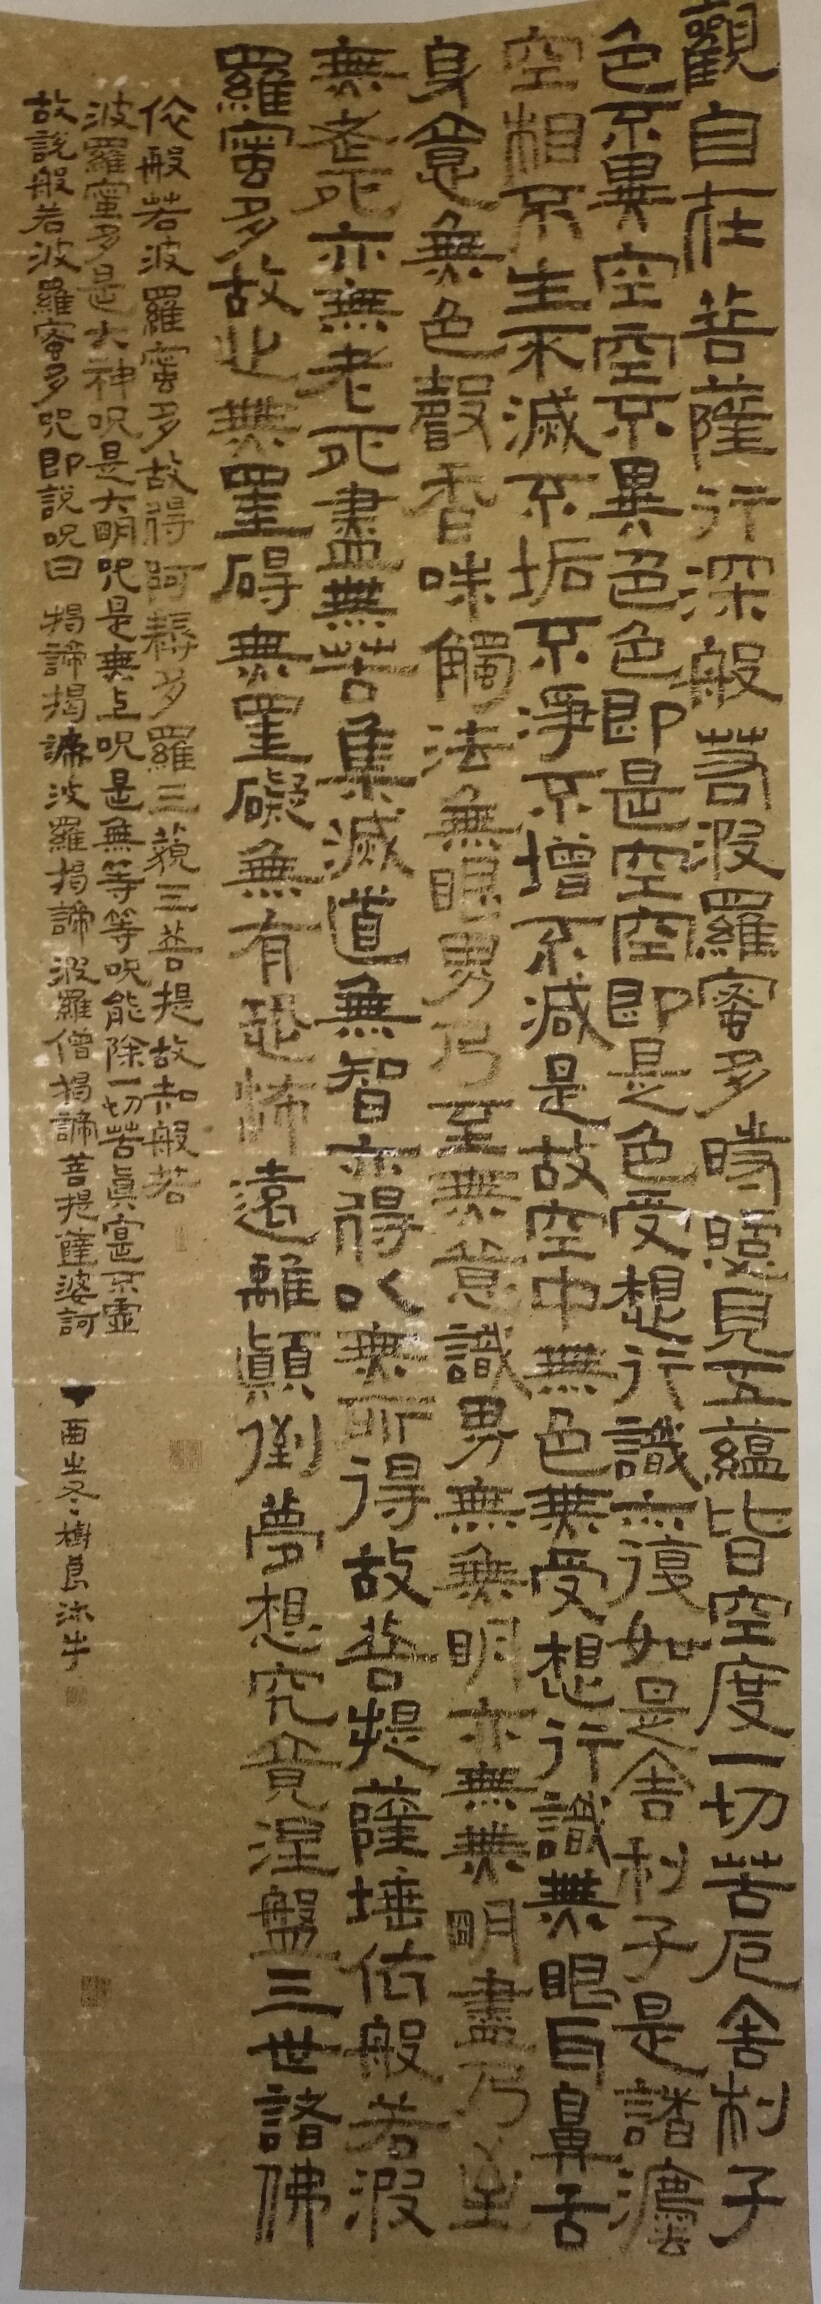 觀自在菩薩行深般若波羅蜜多時照見五蘊皆空度一切苦厄舍利子
色不異空空不異色色即是空空即是色受想行識亦復如是舍利子是諸灋
空相不生不滅不垢不淨不增不減是故空中無色無受想行識無眼耳鼻舌
身意無色聲香味觸法無眼界乃至無意識界無無明亦無無明盡乃至
無老死亦無老死盡無苦集滅道無智亦得以無所得故菩提薩埵依般若波
羅蜜多故心無罣碍無罣礙無有恐怖遠離顛倒夢想究竟涅盤三世諸佛
依般若波羅蜜多故得阿耨多羅三藐三菩提故知般若
波羅蜜多是大神呪是大明呪是無上呪是無等等呪能除一切苦眞實不虛
故說般若波羅蜜多呪即說呪曰 揭諦揭諦波羅揭諦波羅僧揭諦菩提薩婆訶 酉之冬樹良沐手